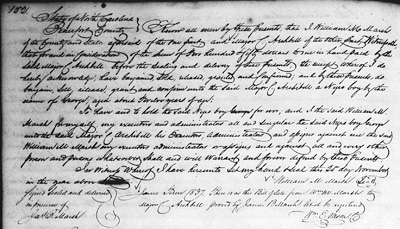 1821 State of North Carolina
Beaufort County Know all men by these presents that I William M Marsh
of the County and State aforesaid of the one part and Major Archbell of the other part, Witnesseth,
that for and in consideration of the sum of Two hundred fifty dollars to me in hand paid by the
said Major Archbell before the sealing and delivery of these presents the receipt whereof I do
hereby acknowledge, have bargained sold, released, granted and confirmed, and by these presents do
bargain, sell, release, grant and confirm unto the said Major Archbell a Negro boy by the
name of George, aged about years of age.
To have and to hold the said Negro boy George for ever, and I the said William M
Marsh for myself, my executors and administrators all and singular the said Negro boy George
unto the said Major Archbell his Executors, administrators and assigns against me the said
William M Marsh my executors administrators or assigns and against all and every other
person and persons whatsoever shall and will warrant and forever defend by these presents
In witness whereof I have hereunto set my hand & seal this 25 day November
in the year above William M. Marsh Seal
Signed sealed and delivered
in presence of
Marsh
June Term 1837. Then was this Bill of Sale from Wm M. Marsh to
Major Archbell proved by James Let it be registered